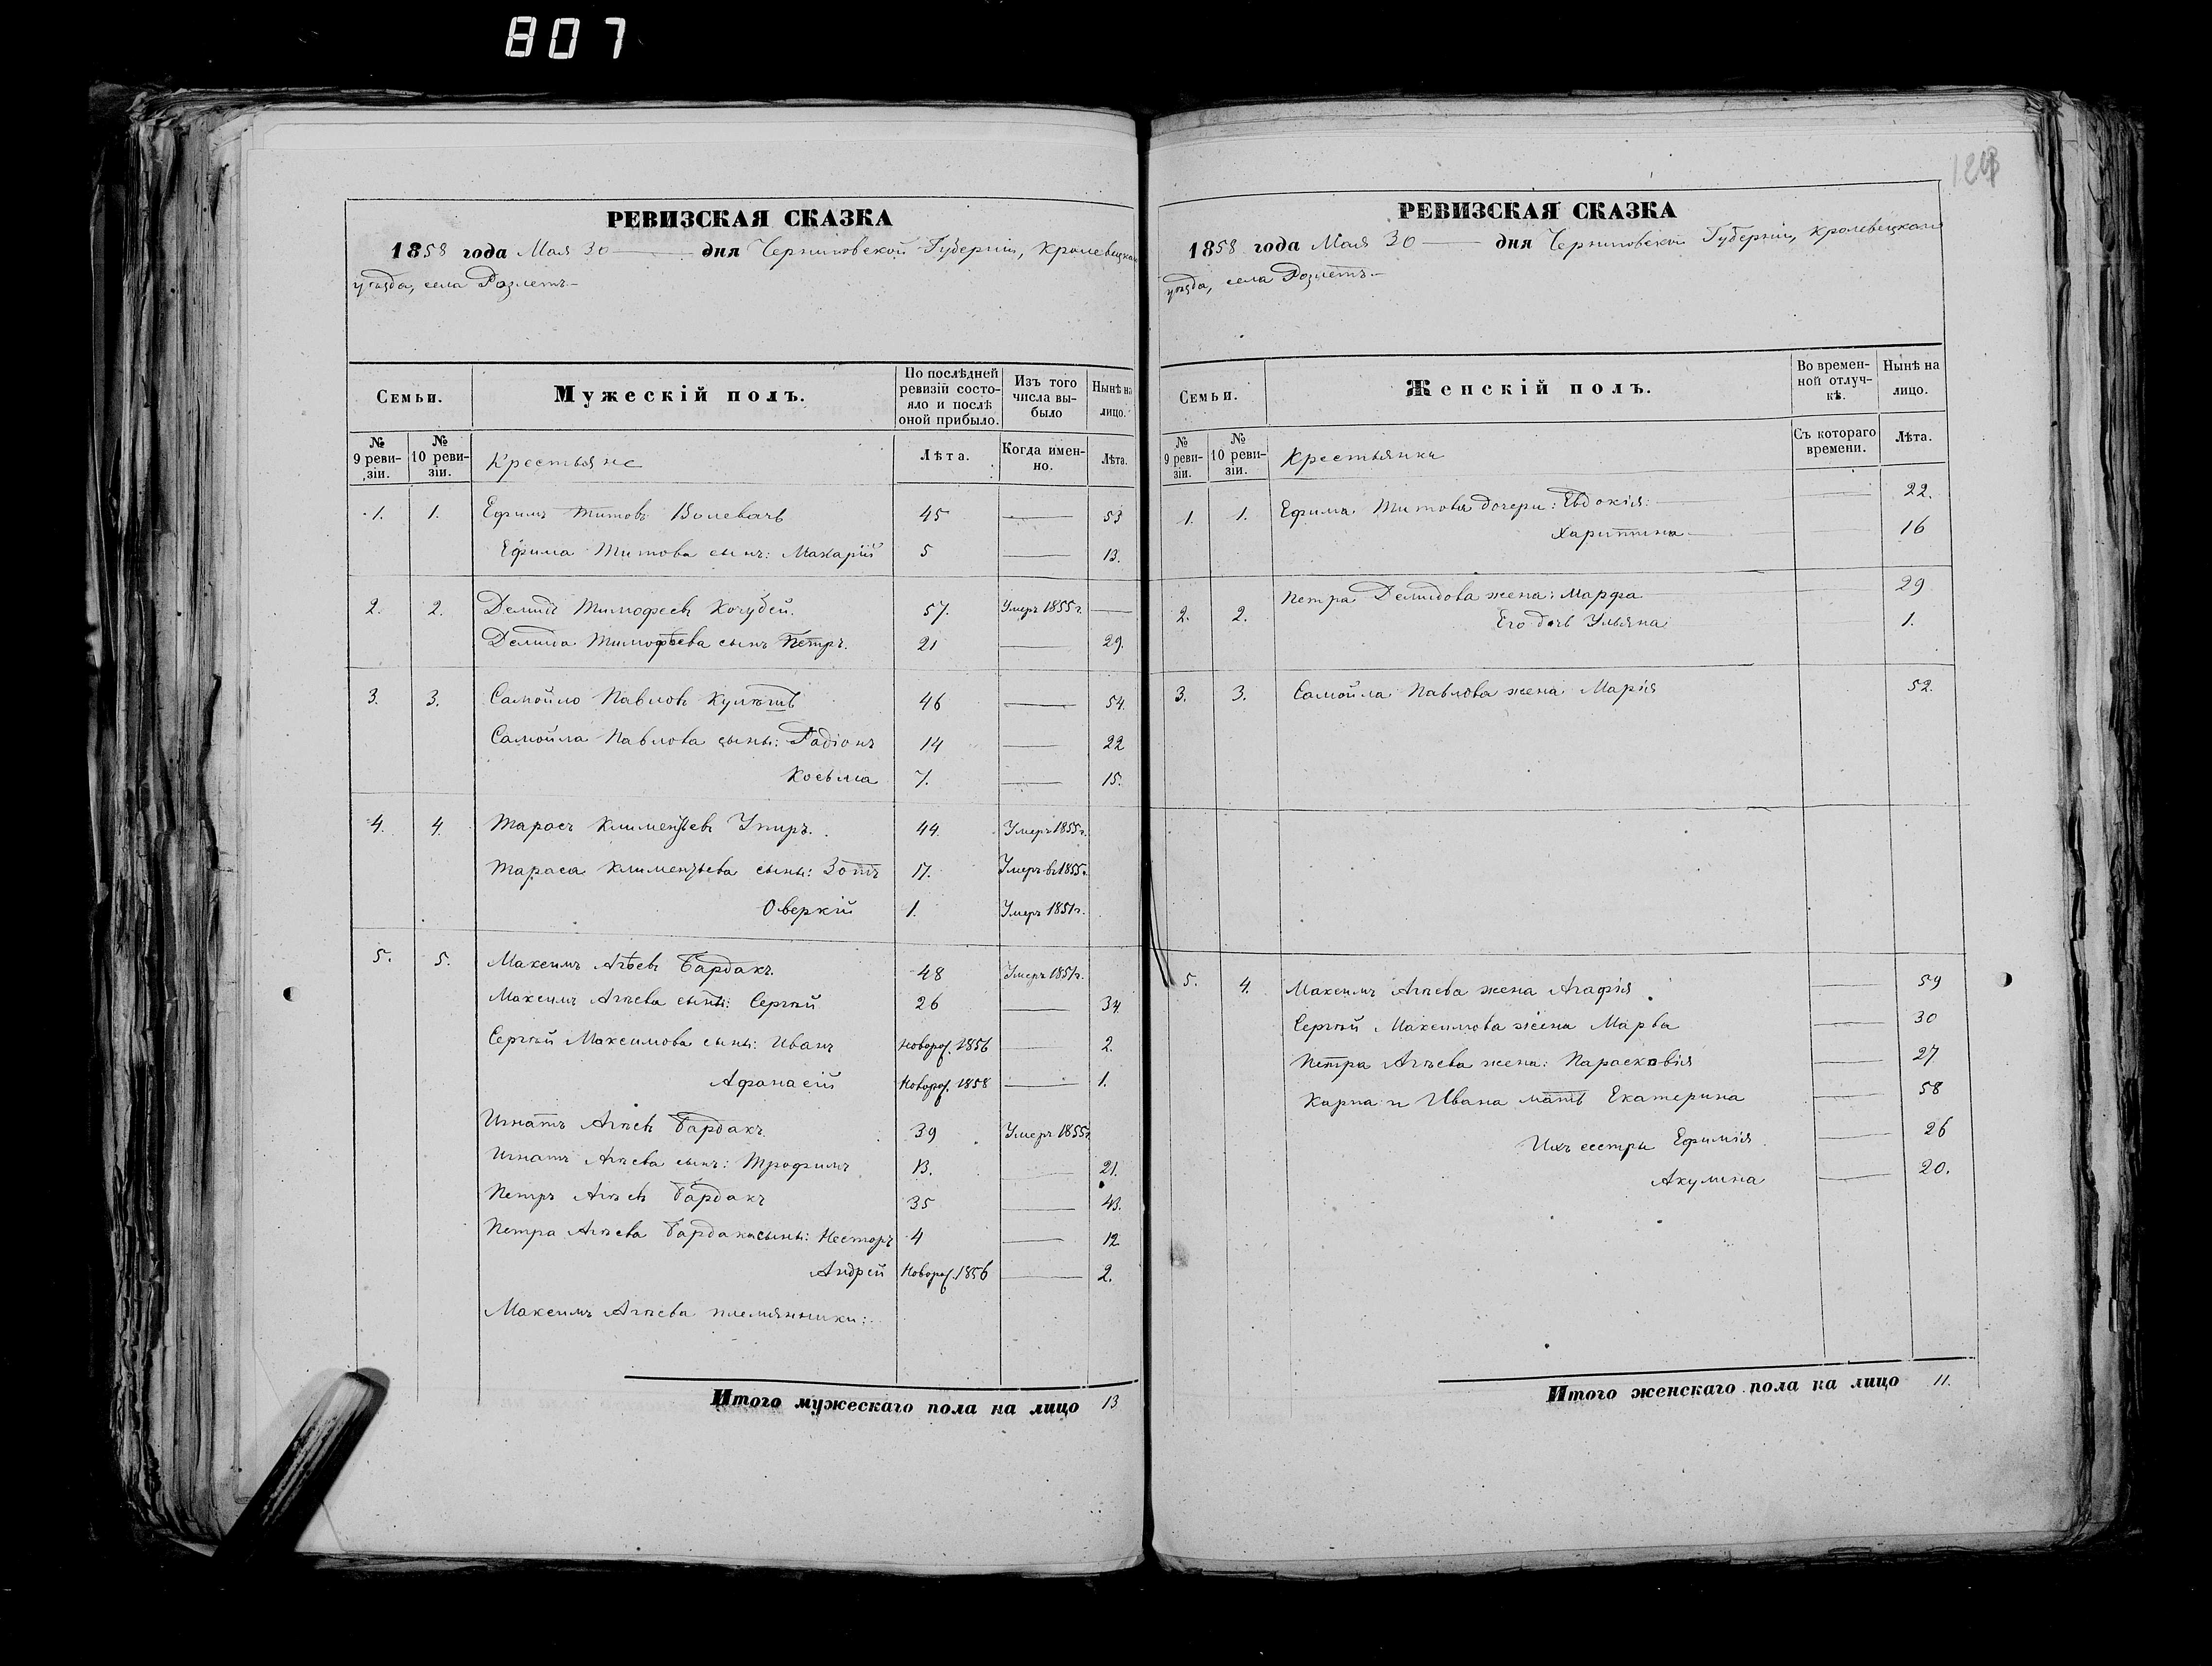 807
РЕВИЗСКАЯ СКАЗКА
1858 года Мая 30 дня Черниговской Губерніи, Кролевецкаго
уѣзда, села Розлетъ.
Семьи.
Мужескій полъ.
По послѣдней ревизіи состояло и послѣ оной прибыло.
Изъ того числа выбыло
Нынѣ на лицо.
№ 9 ревизіи.
№ 10 ревизіи.
Крестьяне
Лѣта.
Когда именно.
Лѣта.
1. 1. Ефимъ Титовъ 45 — 53
Ефима Титова сынъ: Макарій 5 — 13.
2. 2. Демидъ Тимофеевъ Кочубей. 57. Умеръ 1855 г. —
Демида Тимофѣева сынъ Петръ. 21 — 29.
3. 3. Самойло Павловъ 46 — 54.
Самойла Павлова сыны: Радіонъ 14 — 22
Косьма 7. — 15.
4. 4. Тарасъ Климентьевъ Упиръ. 44. Умеръ 1855 г.
Тараса Климентьева сыны: Зотъ 17. Умеръ въ 1855 г.
Оверкій 1. Умеръ 1851 г.
5. 5. Максимъ Агѣевъ Бардакъ. 48 Умеръ 1851 г.
Максимъ Агѣева сыны: Сергѣй 26 — 34.
Сергѣй Максимова сыны: Иванъ Новорож. 1856 — 2.
Афанасій Новорож. 1858 — 1.
Игнатъ Агѣевъ Бардакъ. 39 Умеръ 1855 г.
Игнатъ Агѣева сынъ: Трофимъ 13. — 21.
Петръ Агѣевъ Бардакъ 35 — 43.
Петра Агѣева Бардака сыны: Несторъ 4 — 12
Андрей Новорож. 1856 — 2.
Максимъ Агѣева племянники:
Итого мужескаго пола на лицо 13
РЕВИЗСКАЯ СКАЗКА
1858 года Мая 30 дня Черниговской Губерніи, Кролевецкаго
уѣзда, села Розлетъ.
Семьи.
Женскій полъ.
Во временной отлучкѣ.
Нынѣ на лицо.
№ 9 ревизіи.
№ 10 ревизіи.
Крестьянки
Съ котораго времени.
Лѣта.
1. 1. Ефима Титова дочери: Евдокія — 22.
Харитина — 16
2. 2. Петра Демидова жена: Марфа 29
Его дочь Ульяна 1.
3. 3. Самойла Павлова жена Марія 52.
5. 4. Максимъ Агѣева жена Агафія — 59
Сергѣй Максимова жена Марва — 30
Петра Агѣева жена: Парасковія — 27
Карпа и Ивана мать Екатерина — 58
Ихъ сестры Ефимія — 26
Акулина — 20.
Итого женскаго пола на лицо 11.